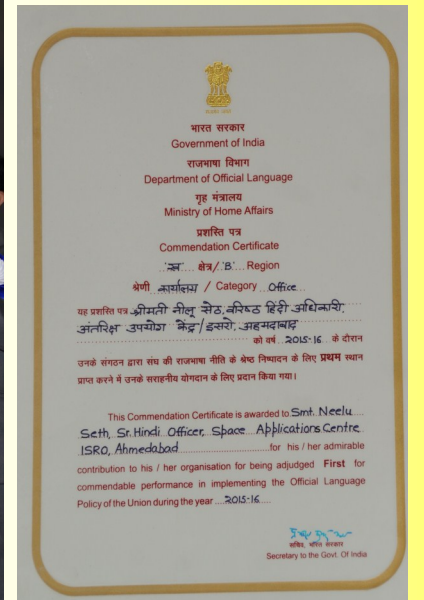 भारत सरकार
Government of India
राजभाषा विभाग
Department of Official Language
गृह मंत्रालय
Ministry of Home Affairs
प्रशस्ति पत्र
Commendation Certificate
'ख' क्षेत्र/ 'B' Region
श्रेणी कार्यालय / Category Office
यह प्रशस्ति पत्र श्रीमती नीलू सेठ, वरिष्ठ हिंदी अधिकारी,
अंतरिक्ष उपयोग केंद्र/इसरो, अहमदाबाद
को वर्ष 2015-16 के दौरान
उनके संगठन द्वारा संघ की राजभाषा नीति के श्रेष्ठ निष्पादन के लिए प्रथम स्थान
प्राप्त करने में उनके सराहनीय योगदान के लिए प्रदान किया गया।
This Commendation Certificate is awarded to Smt. Neelu
Seth, Sr. Hindi Officer, Space Applications Centre
ISRO, Ahmedabad for his / her admirable
contribution to his / her organisation for being adjudged First for
commendable performance in implementing the Official Language
Policy of the Union during the year 2015-16
सचिव, भारत सरकार
Secretary to the Govt. Of India